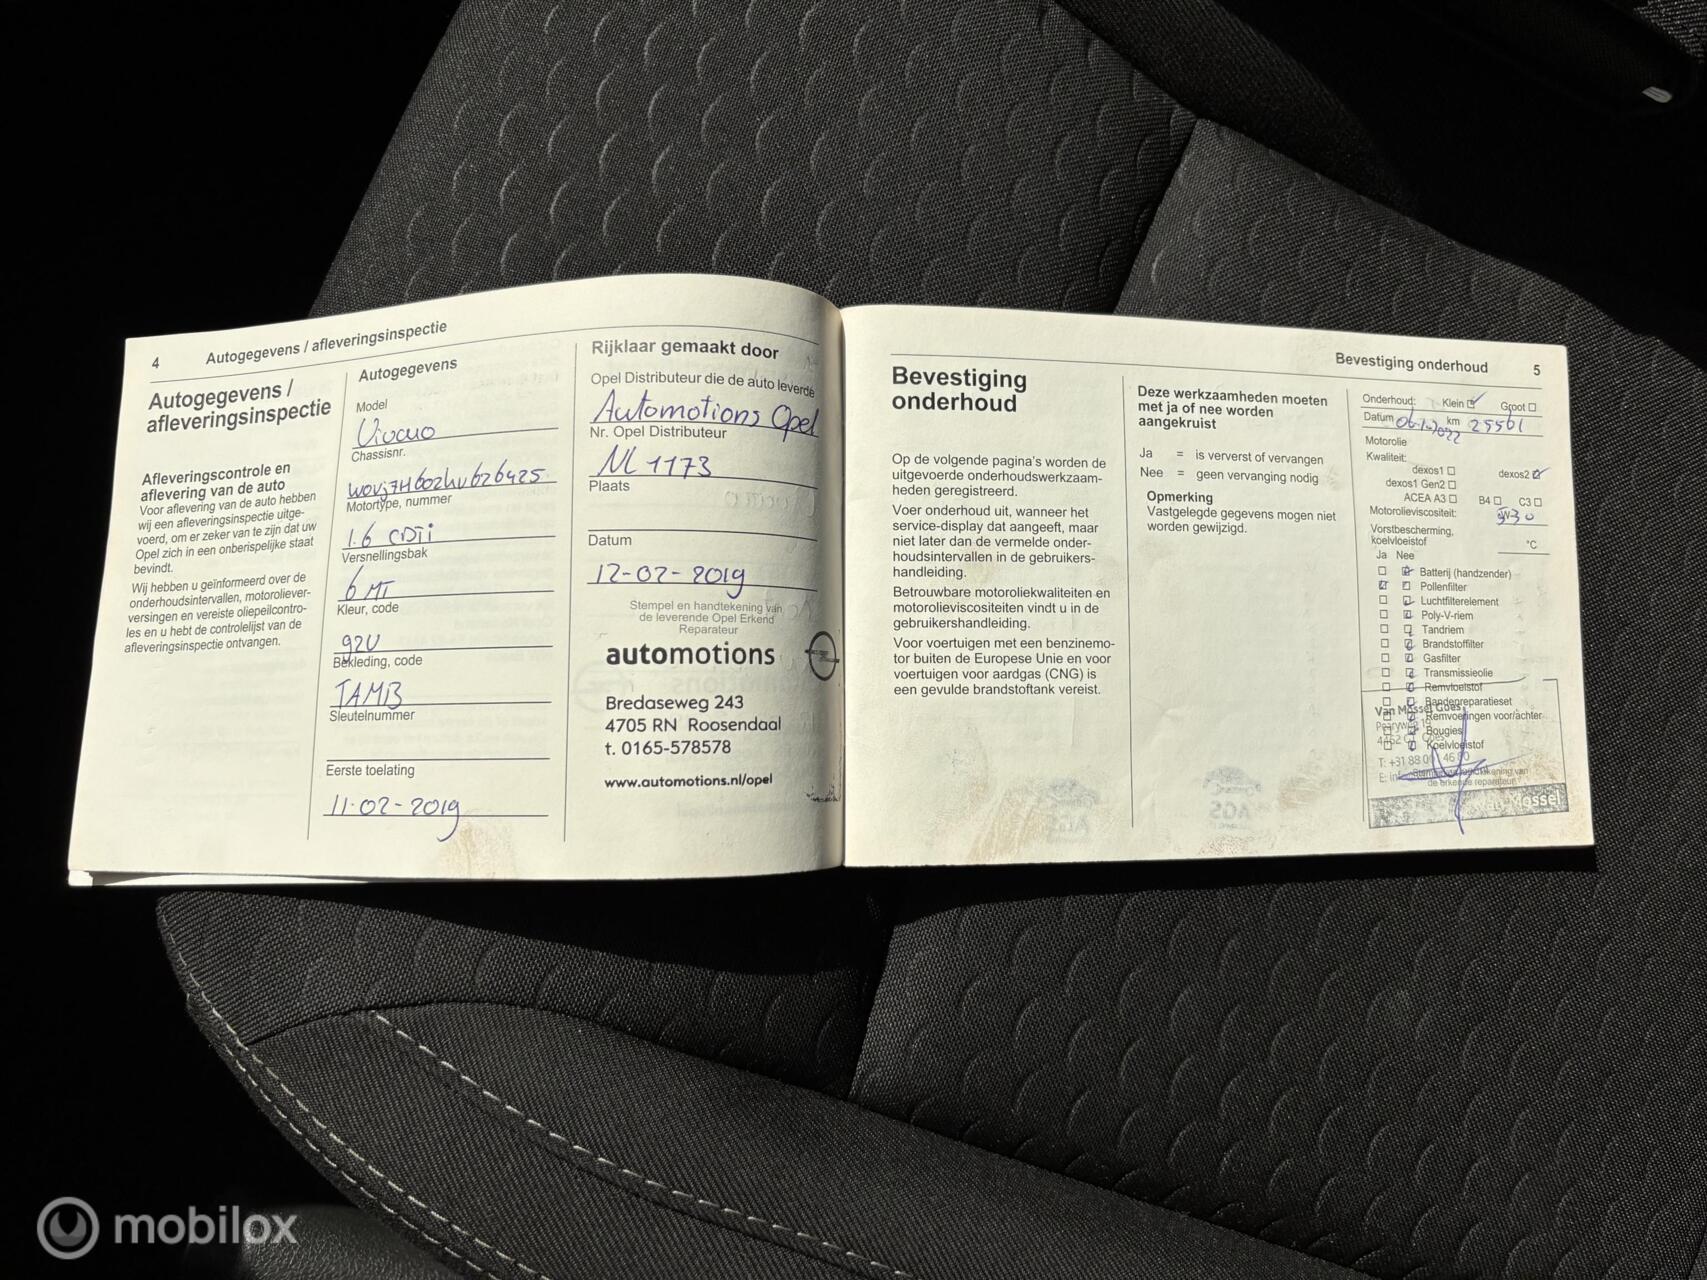 4
Autogegevens / afleveringsinspectie
Autogegevens /
afleveringsinspectie
Afleveringscontrole en
aflevering van de auto
Voor aflevering van de auto hebben
wij een afleveringsinspectie uitge-
voerd, om er zeker van te zijn dat uw
Opel zich in een onberispelijke staat
bevindt.
Wij hebben u geïnformeerd over de
onderhoudsintervallen, motoroliever-
versingen en vereiste oliepeilcontro-
les en u hebt de controlelijst van de
afleveringsinspectie ontvangen.
Autogegevens
Model
Vivaro
Chassisnr.
Motortype, nummer
1.6 CDTi
Versnellingsbak
6 MT
Kleur, code
92U
Bekleding, code
TAMB
Sleutelnummer
Eerste toelating
11-02-2019
Rijklaar gemaakt door
Opel Distributeur die de auto leverde
Automotions Opel
Nr. Opel Distributeur
NL 1173
Plaats
Datum
12-02-2019
Stempel en handtekening van
de leverende Opel Erkend
Reparateur
automotions
Bredaseweg 243
4705 RN Roosendaal
t. 0165-578578
www.automotions.nl/opel
Bevestiging onderhoud 5
Bevestiging
onderhoud
Op de volgende pagina's worden de
uitgevoerde onderhoudswerkzaam-
heden geregistreerd.
Voer onderhoud uit, wanneer het
service-display dat aangeeft, maar
niet later dan de vermelde onder-
houdsintervallen in de gebruikers-
handleiding.
Betrouwbare motoroliekwaliteiten en
motorolieviscositeiten vindt u in de
gebruikershandleiding.
Voor voertuigen met een benzinemo-
tor buiten de Europese Unie en voor
voertuigen voor aardgas (CNG) is
een gevulde brandstoftank vereist.
Deze werkzaamheden moeten
met ja of nee worden
aangekruist
Ja = is ververst of vervangen
Nee = geen vervanging nodig
Opmerking
Vastgelegde gegevens mogen niet
worden gewijzigd.
Onderhoud: Klein Groot
Datum km 25561
Motorolie
Kwaliteit:
dexos1 dexos2
dexos1 Gen2
ACEA A3 B4 C3
Motorolieviscositeit: 5W30
Vorstbescherming,
koelvloeistof °C
Ja Nee
Batterij (handzender)
Pollenfilter
Luchtfilterelement
Poly-V-riem
Tandriem
Brandstoffilter
Gasfilter
Transmissieolie
Remvloeistof
Bandenreparatieset
Van Mossel Goes
Remvoeringen voor/achter
Bougies
Koelvloeistof
Van Mossel
mobilox